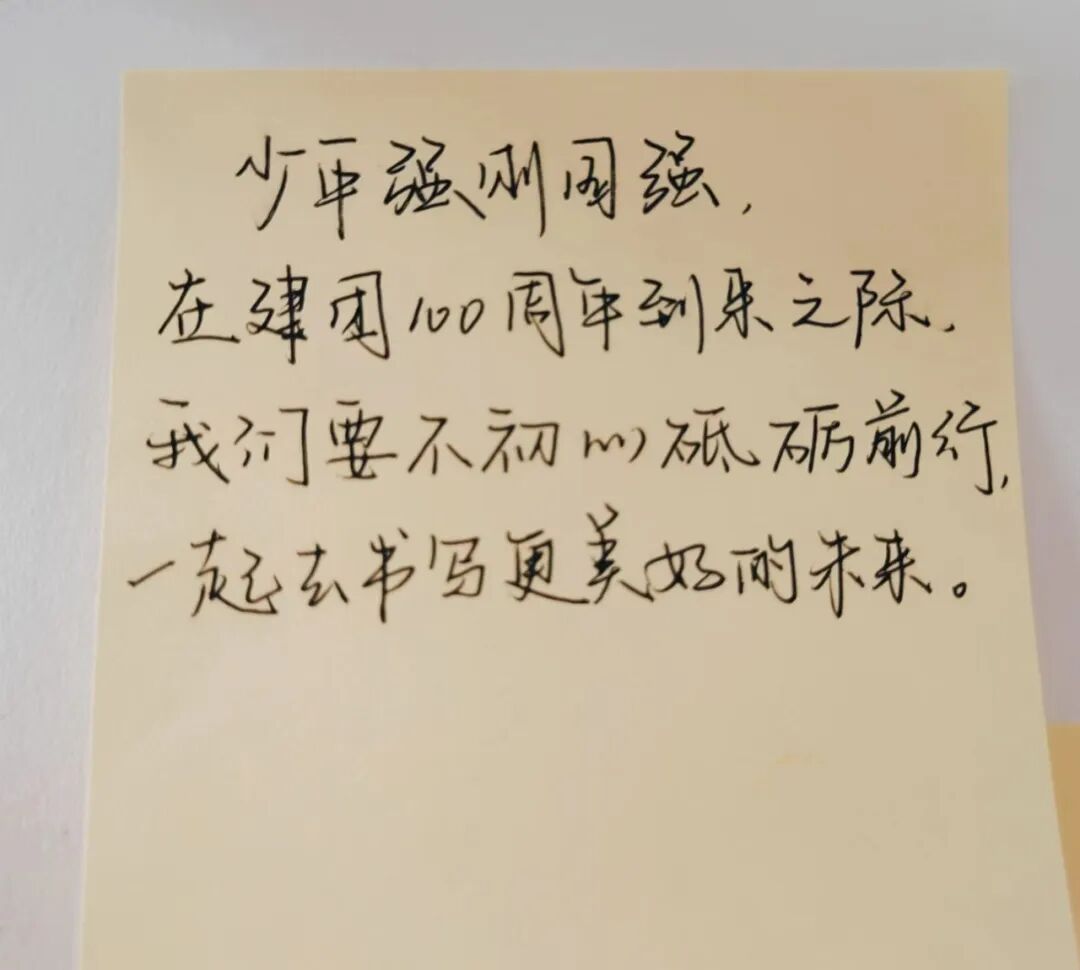 少年强则国强,
在建团100周年到来之际,
我们要不初心砥砺前行,
一起去书写更美好的未来。